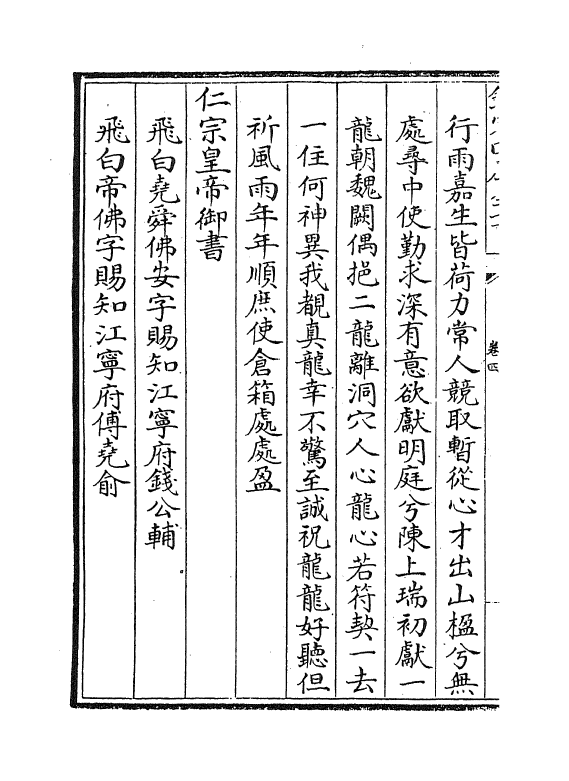 卷四
行雨嘉生皆荷力常人競取暫從心才出山楹兮無
處尋中使勤求深有意欲獻明庭兮陳上瑞初獻一
龍朝魏闕偶挹二龍離洞穴人心龍心若符契一去
一住何神異我覩真龍幸不驚至誠祝龍龍好聽但
祈風雨年年順庶使倉箱處處盈
仁宗皇帝御書
飛白堯舜佛安字賜知江寧府錢公輔
飛白帝佛字賜知江寧府傅堯俞